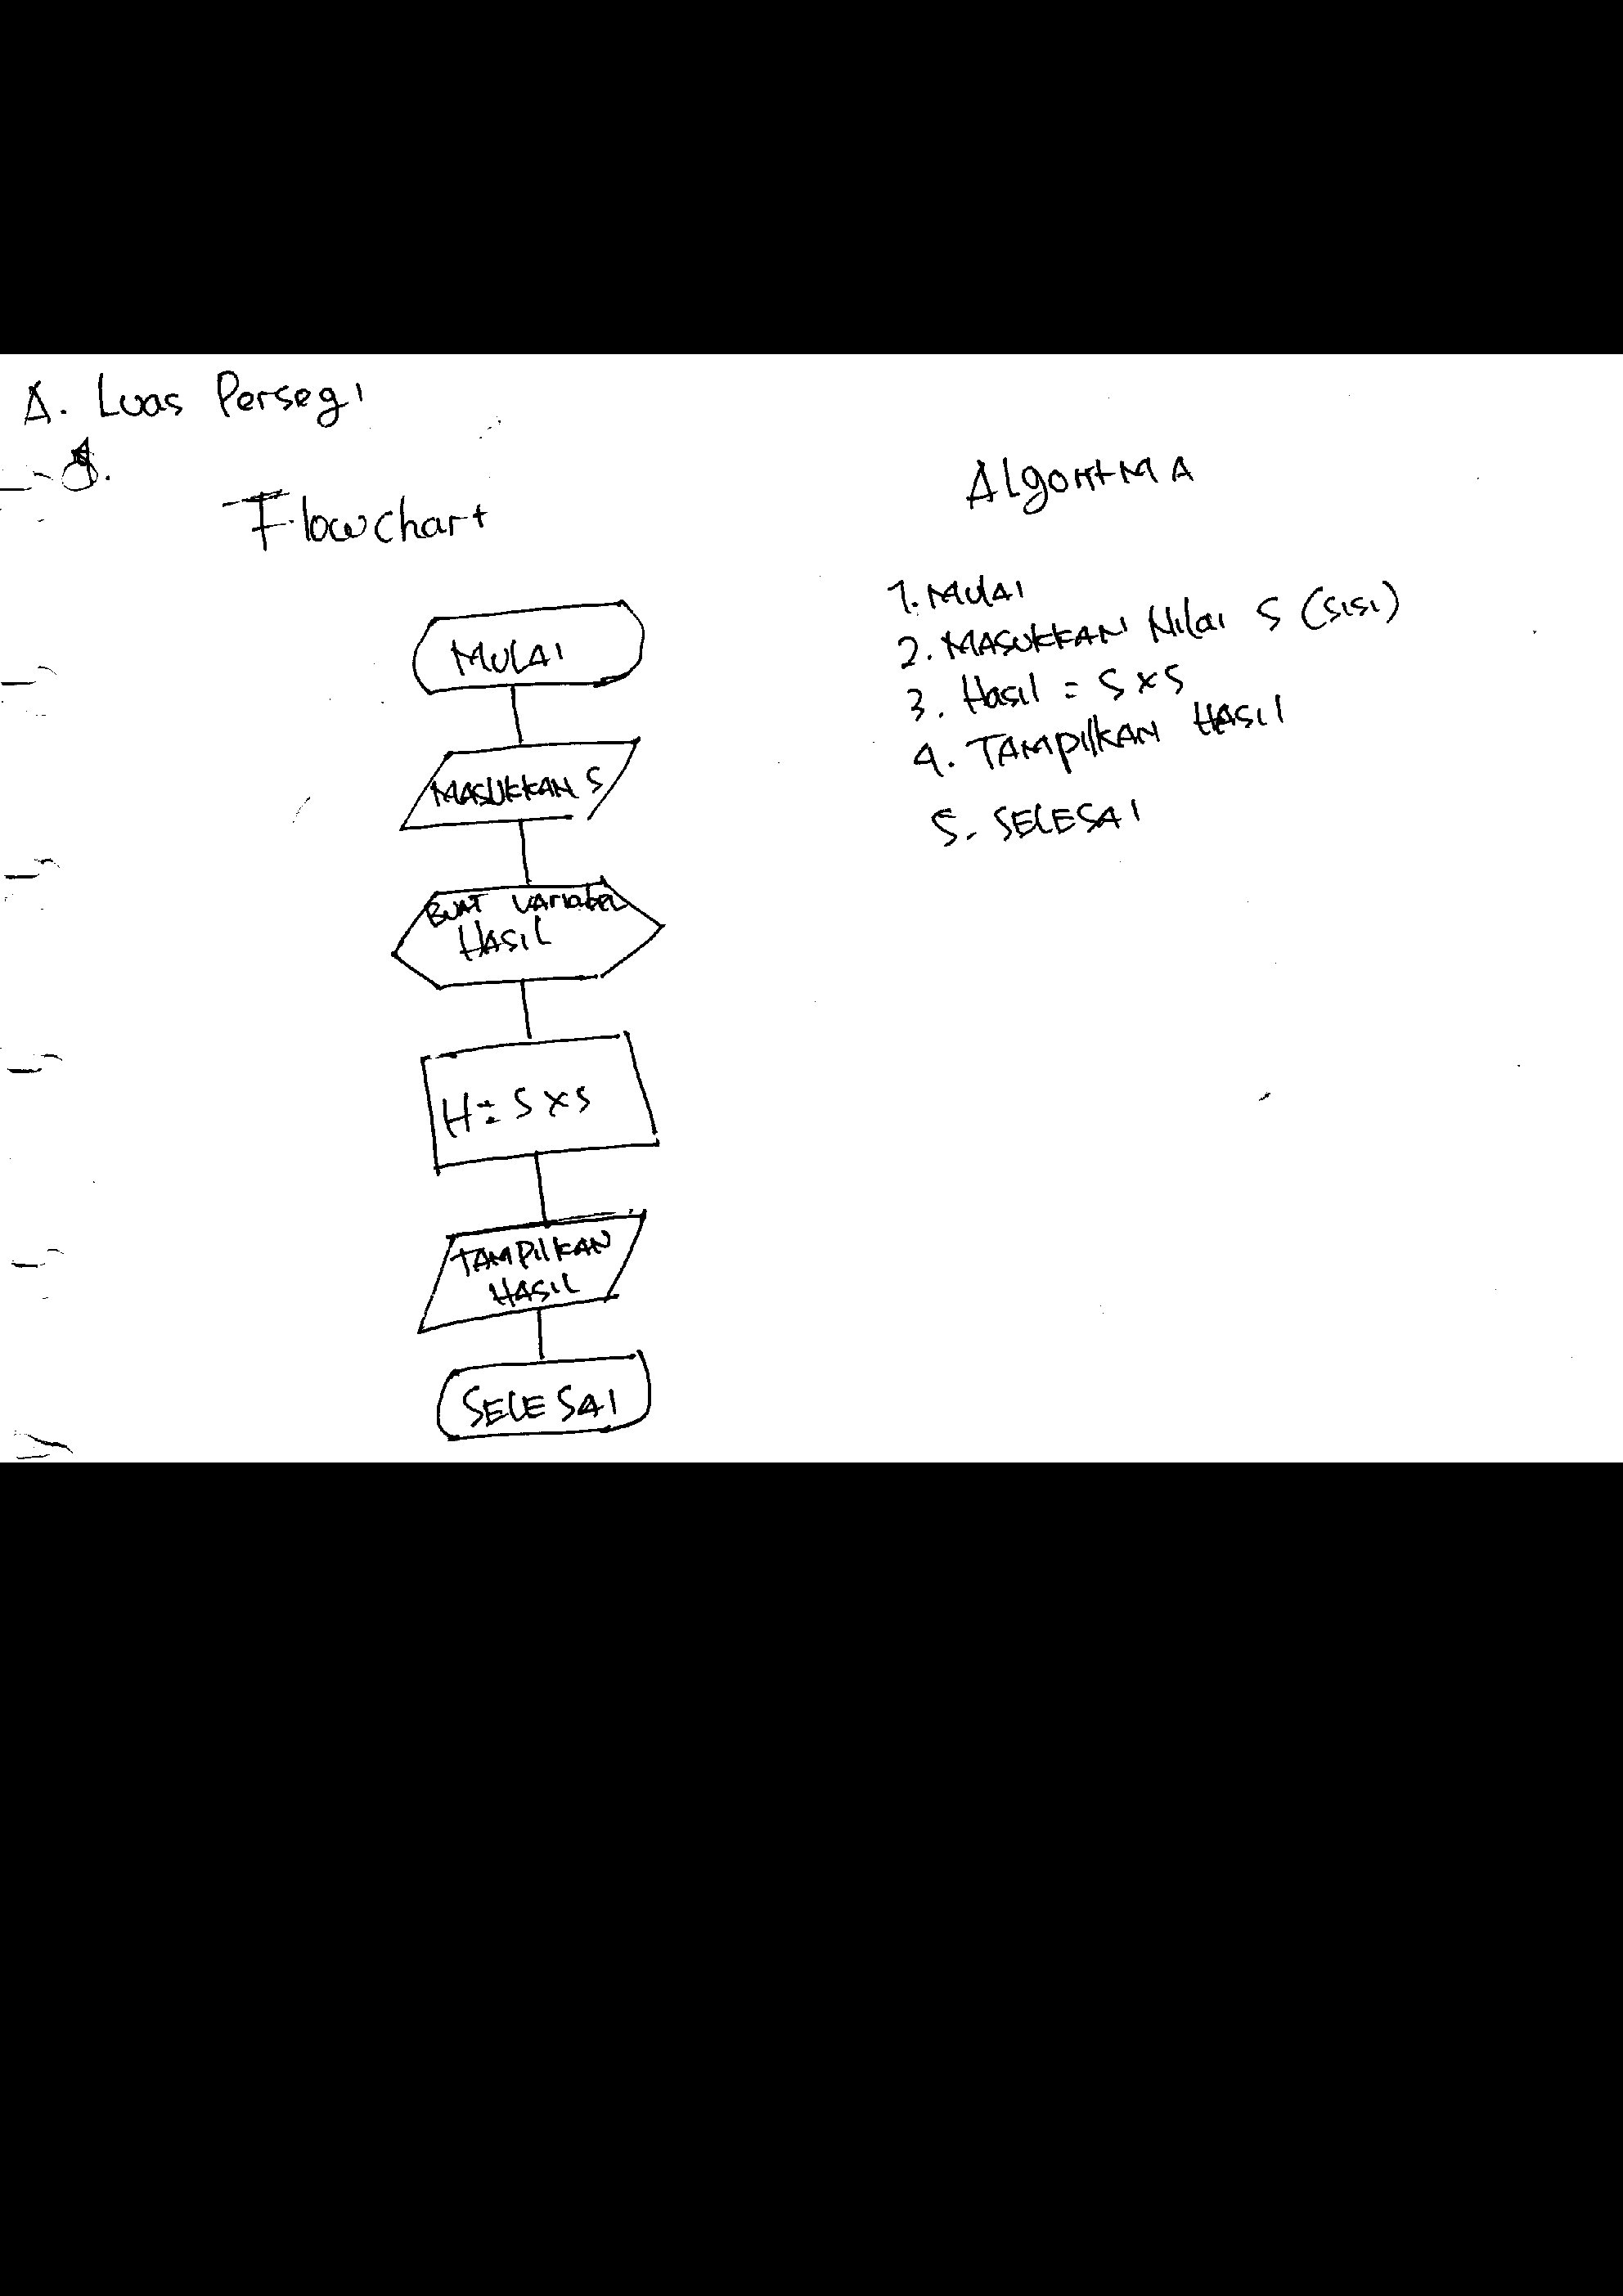 A. Luas Persegi
Flowchart
MULAI
MASUKKAN S
BUAT VARIABEL
HASIL
H = S x S
TAMPILKAN
HASIL
SELESAI
ALgoritMA
1. MULAI
2. MASUKKAN Nilai S (SiSi)
3. Hasil = S x S
4. TAMPilKAN HASil
5. SELESAI